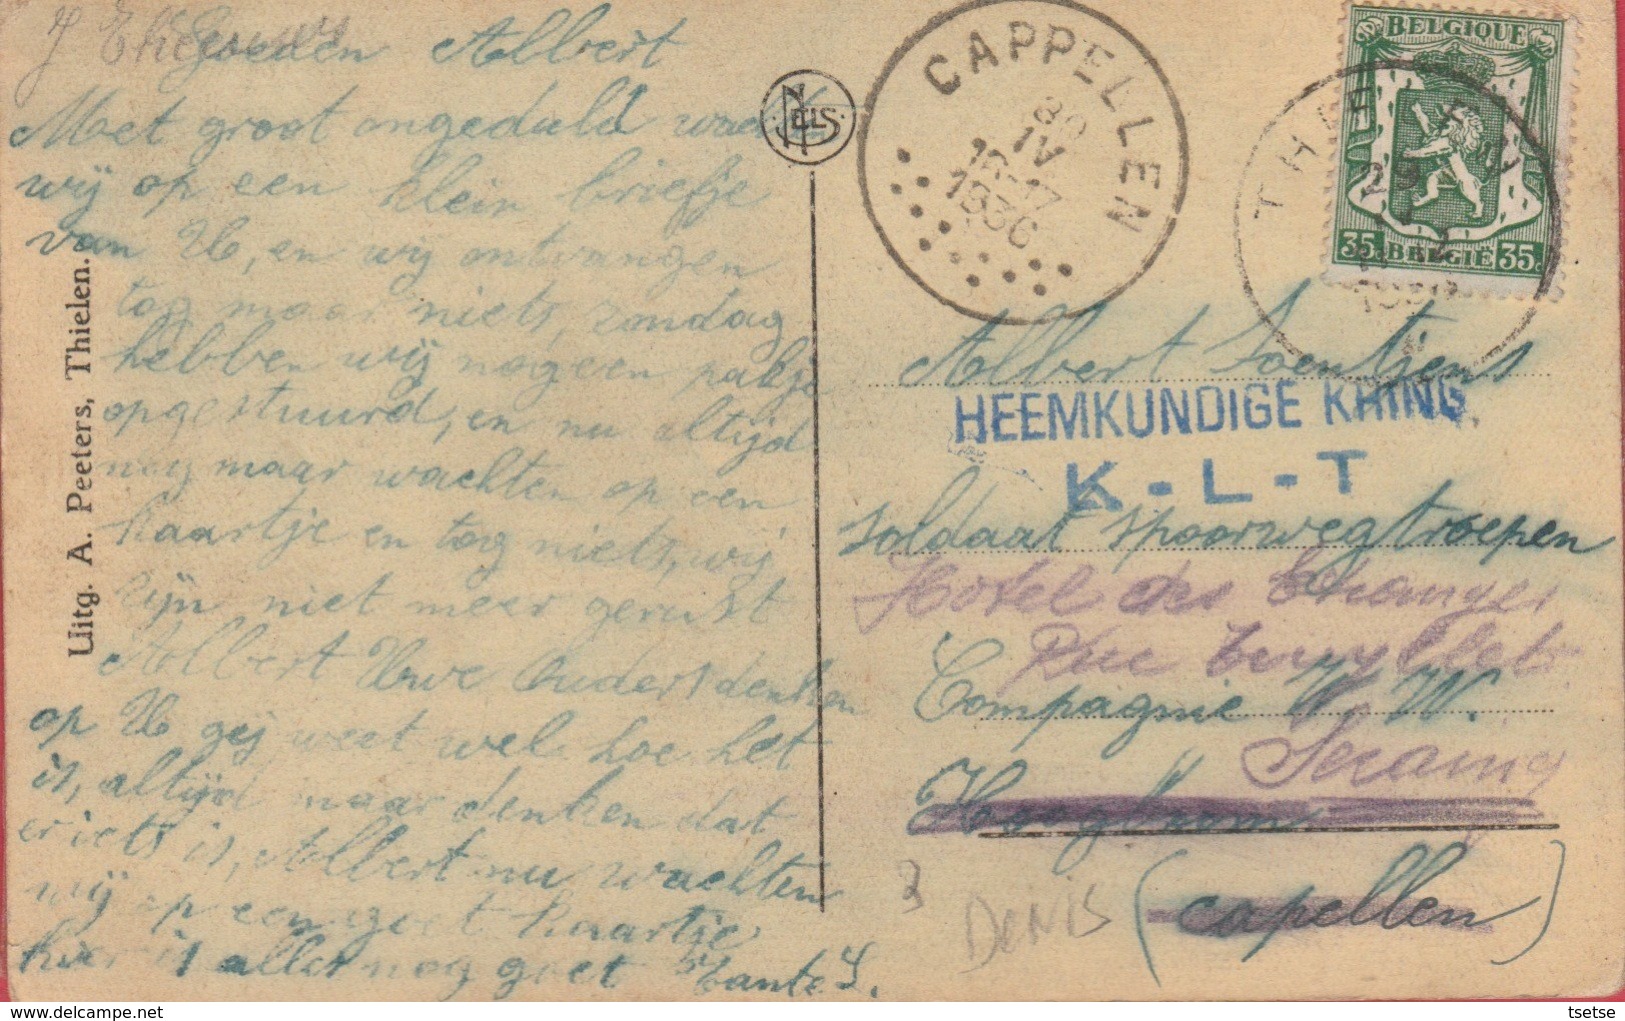 Goeden Albert
Met groot ongeduld
wij op een klein briefje
van U, en wij ontvangen
tog maar niets, zondag
hebben wij nog een pakje
opgestuurd, en nu altijd
nog maar wachten op een
kaartje en tog niets, wij
zijn niet meer gerust
Albert Uwe Ouders denken
op U gij weet wel hoe het
is, altijd maar denken dat
er iets is, Albert nu wachten
wij op een goet kaartje
hier is alles nog goet Tante S.
Uitg. A. Peeters, Thielen.
NELS
CAPPELLEN
30
IV
16-17
1936
BELGIQUE
35c BELGIE 35c
29
Albert Soentjens
HEEMKUNDIGE KRING
K-L-T
soldaat spoorwegtroepen
Hotel des Etranges
Rue
Compagnie W. W.
Seraing
(Capellen)
DENIS
tsetse